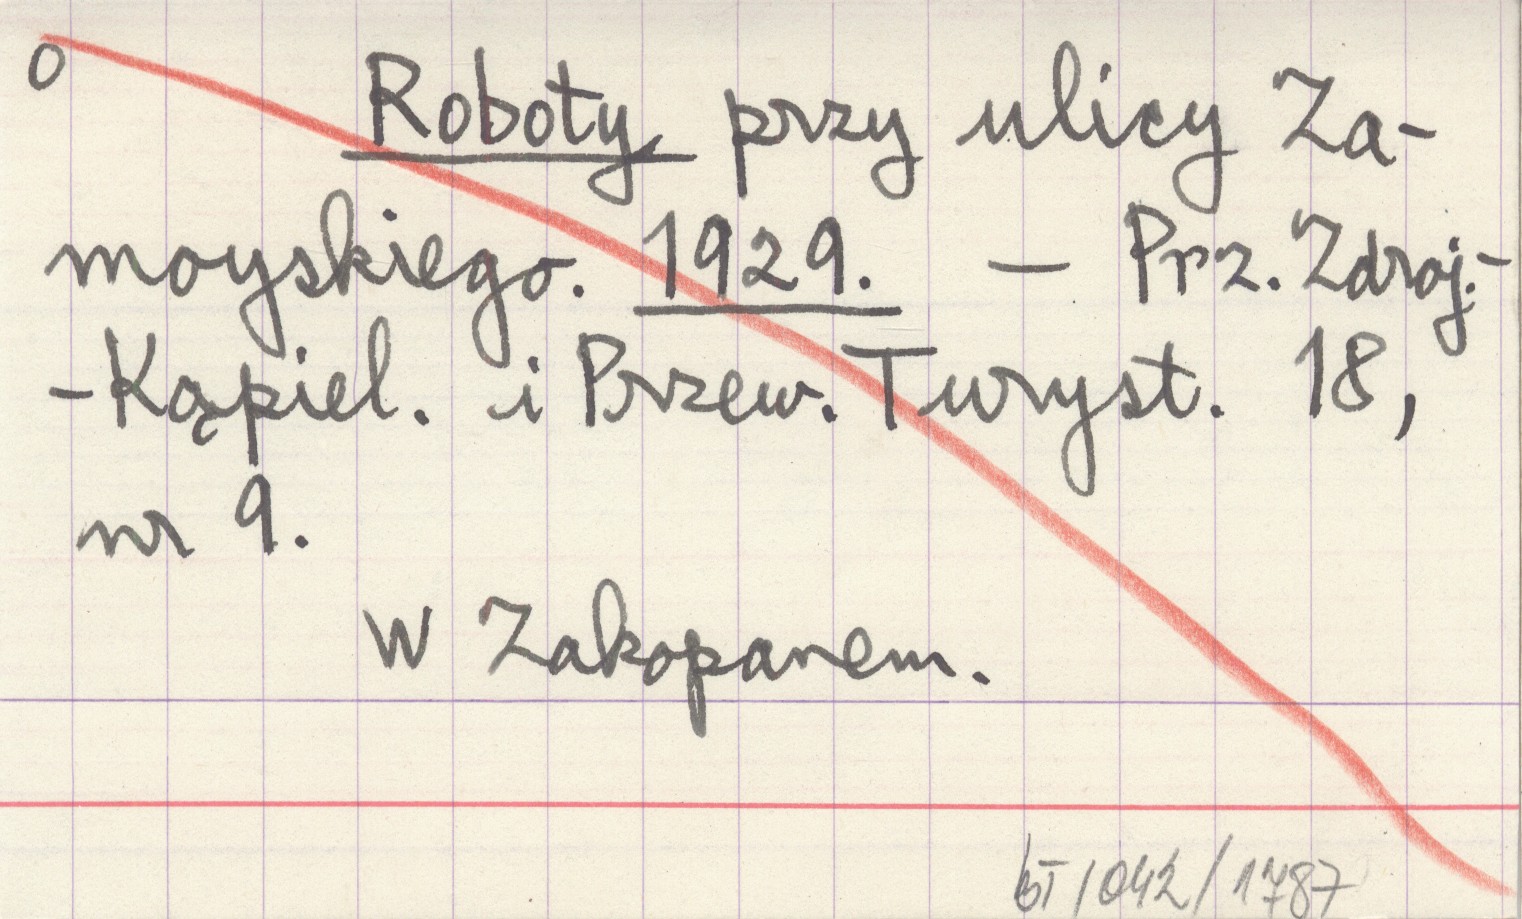 o
Roboty przy ulicy Za-
moyskiego. 1929. — Prz. Zdroj.-
-Kąpiel. i Przew. Turyst. 18,
nr 9.
W Zakopanem.
bT/042/1787